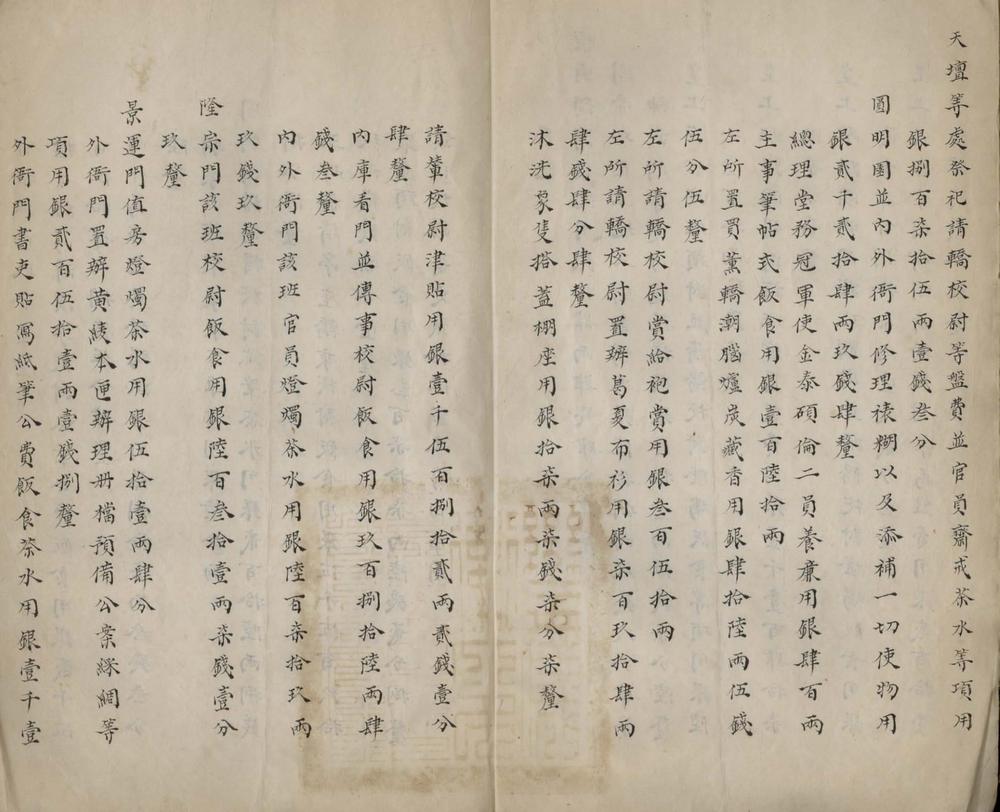 天壇等處祭祀請轎校尉等盤費並官員齋戒茶水等項用
銀捌百柒拾伍兩壹錢叁分
圓明園並內外衙門修理裱糊以及添補一切使物用
銀貳千貳拾肆兩玖錢肆釐
總理堂務冠軍使金泰碩倫二員養廉用銀肆百兩
主事筆帖式飯食用銀壹百陸拾兩
左所置買薰轎潮腦爐炭藏香用銀肆拾陸兩伍錢
伍分伍釐
左所請轎校尉賞給袍賞用銀叁百伍拾兩
左所請轎校尉置辦葛夏布衫用銀柒百玖拾肆兩
肆錢肆分肆釐
沐洗象隻搭蓋棚座用銀拾柒兩柒錢柒分柒釐
請輦校尉津貼用銀壹千伍百捌拾貳兩貳錢壹分
肆釐
內庫看門並傳事校尉飯食用銀玖百捌拾陸兩肆
錢叁釐
內外衙門該班官員燈燭茶水用銀陸百柒拾玖兩
玖錢玖釐
隆宗門該班校尉飯食用銀陸百叁拾壹兩柒錢壹分
玖釐
景運門值房燈燭茶水用銀伍拾壹兩肆分
外衙門置辦黃綾本匣辦理册檔預備公案綵綢等
項用銀貳百伍拾壹兩壹錢捌釐
外衙門書吏貼寫紙筆公費飯食茶水用銀壹千壹